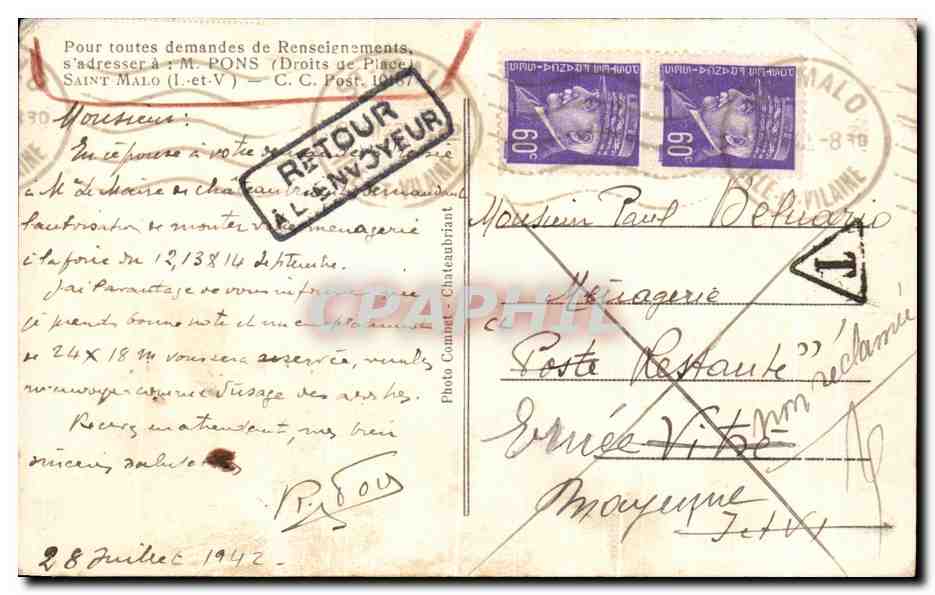 Pour toutes demandes de Renseignements,
s'adresser à : M. PONS (Droits de Place)
SAINT MALO (I.-et-V) — C. C. Post. 10167
Monsieur :
En réponse à votre
à Mr Le Maire de Châteaubriant demandant
l'autorisation de monter votre ménagerie
à la foire du 12, 13 & 14 Septembre.
J'ai l'avantage de vous informer que
je prends bonne note et un emplacement
de 24 x 18 m vous sera réservé,
comme d'usage des arrhes.
en attendant, mes bien
sincères salutations
28 Juillet 1942
RETOUR
À L'ENVOYEUR
Photo Combet - Chateaubriant
POSTES FRANÇAISES
60c
POSTES FRANÇAISES
60c
MALO
8 30
ILLE-VILAINE
T
Monsieur Paul Beluario
Ménagerie
Poste Restante
non réclamé
Ernée Vitré
Mayenne
I et V
CPAPHIL